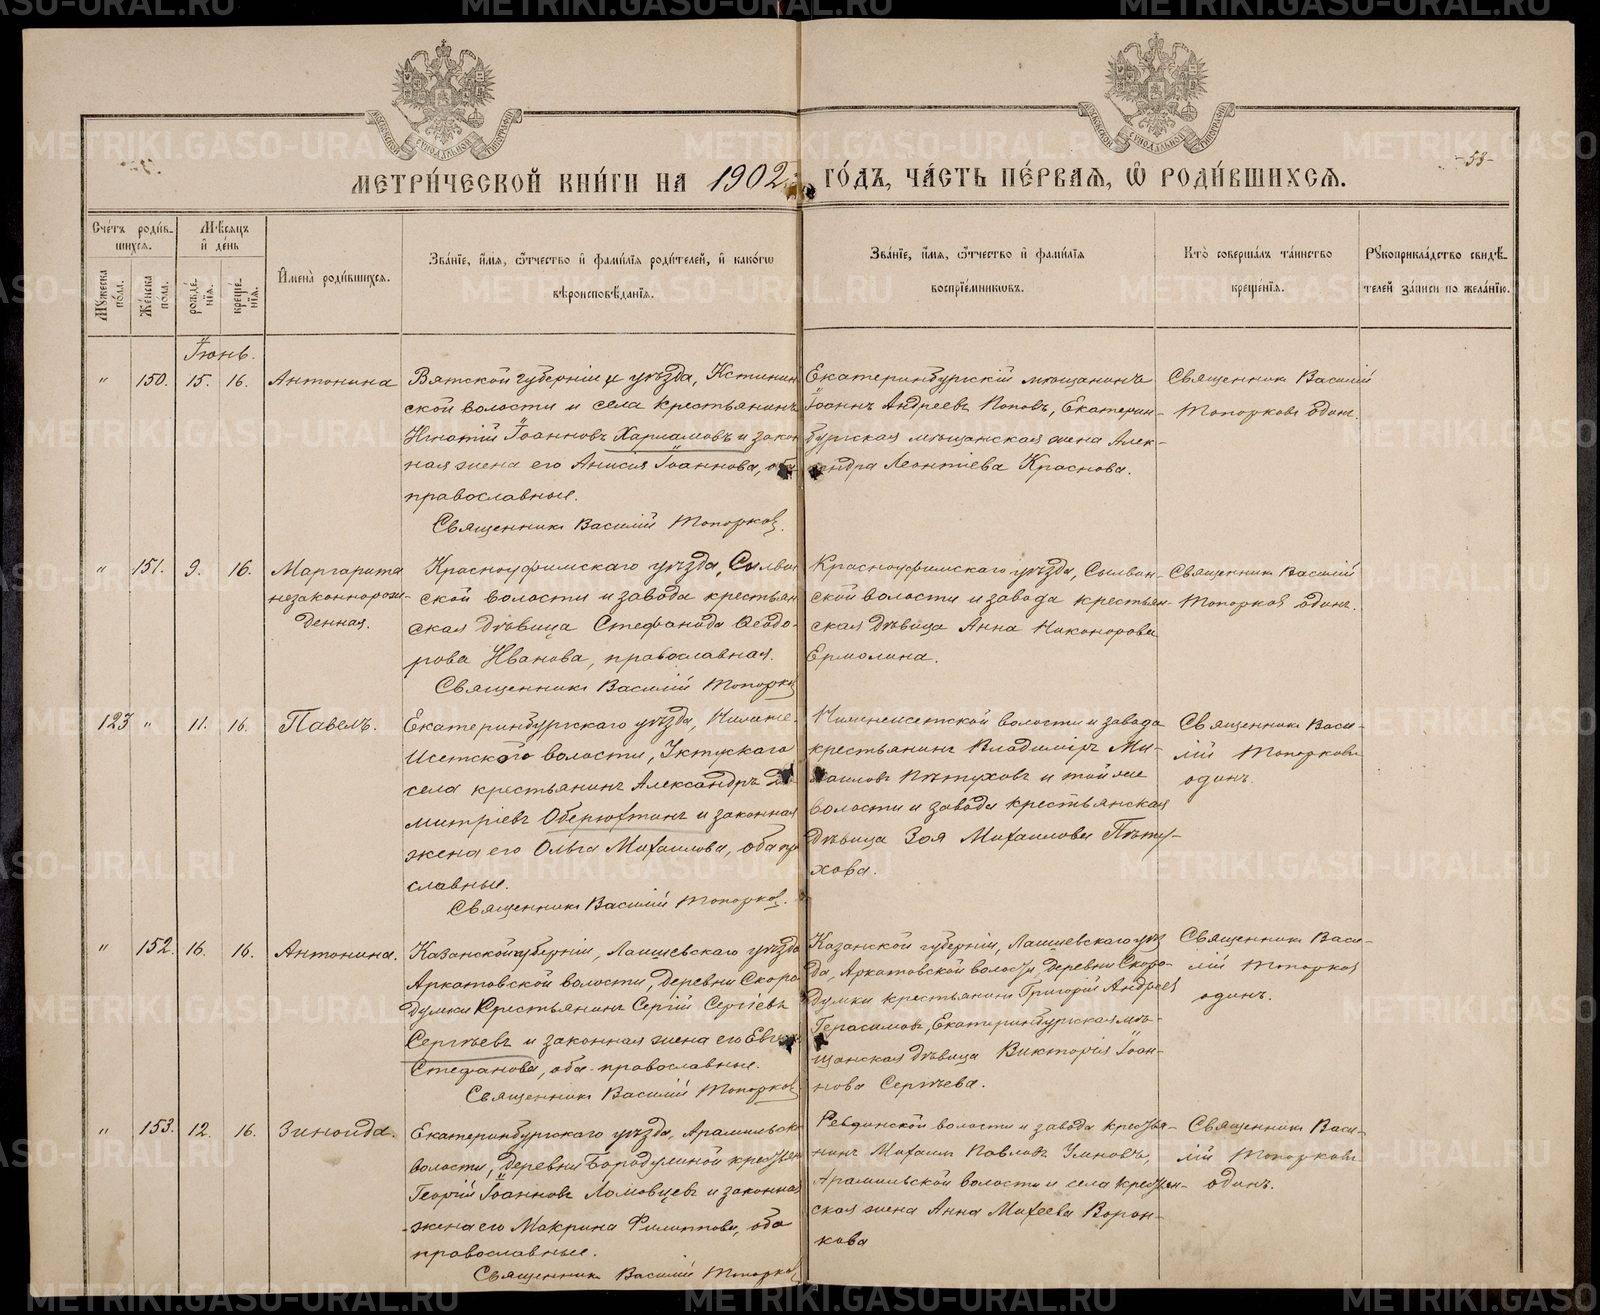 МЕТРИ́ЧЕСКОЙ КНИ́ГИ НА 1902 ГО́ДЪ, ЧА́СТЬ ПЕ́РВАЯ, Ѡ РОДИ́ВШИХСЯ.
-53-
Сче́тъ роди́в-
шихся.
Мѣ́сяцъ
и҆ де́нь
Му́жеска по́ла.
Же́нска пола.
рожде́-
нїя.
креще́-
нїя.
И҆мена̀ роди́вшихся.
Зва́нїе, и҆́мя, ѻ҆́тчество и҆ фами́лїя роди́телей, и҆ како́гѡ
вѣроисповѣ́данїя.
Зва́нїе, и҆́мя, ѻ҆́тчество и҆ фами́лїя
воспрїе́мниковъ.
Кто̀ соверша́лъ та́инство
креще́нїя.
Рукоприкла́дство свидѣ́-
телей за́писи по жела́нїю.
Іюнь.
" 150. 15. 16. Антонина
Вятской губерніи и уѣзда, Кстинин
ской волости и села крестьянинъ
Игнатій Іоанновъ Харламовъ и закон
ная жена его Анисія Іоаннова, оба
православные.
Священникъ Василій Топорков.
Екатеринбургскій мѣщанинъ
Іоаннъ Андреевъ Поповъ, Екатерин-
бургская мѣщанская жена Алек-
сандра Леонтіева Краснова.
Священникъ Василій
Топорковъ одинъ.
" 151. 9. 16. Маргарита
незаконнорож-
денная.
Красноуфимскаго уѣзда, Сылвин
ской волости и завода крестьян
ская дѣвица Стефанида Ѳеодо-
рова Иванова, православная.
Священникъ Василій Топорков
Красноуфимскаго уѣзда, Сылвин-
ской волости и завода крестьян-
ская дѣвица Анна Никонорова
Ермолина.
Священникъ Василій
Топорковъ одинъ.
123 " 11. 16. Павелъ.
Екатеринбургскаго уѣзда, Нижне-
Исетской волости, Уктусскаго
села крестьянинъ Александръ Ди
митріевъ Оберюхтинъ и законная
жена его Ольга Михаилова, оба пра
славные.
Священникъ Василій Топорков.
Нижнеисетской волости и завода
крестьянинъ Владиміръ Ми-
хаиловъ Пѣтуховъ и той же
волости и завода крестьянская
дѣвица Зоя Михаилова Пѣту-
хова.
Священникъ Васи-
лій Топорковъ
одинъ.
" 152. 16. 16. Антонина.
Казанской губерніи, Лаишевскаго уѣзда
Аркатовской волости, деревни Скоро
думки крестьянинъ Сергій Сергіевъ
Сергѣевъ и законная жена его Евген
Стефанова, оба православные.
Священникъ Василій Топорков
Казанской губерніи, Лаишевскаго уѣз
да, Аркатовской волости, деревни Скоро-
думки крестьянинъ Григорій Андреев
Герасимовъ, Екатеринбургская мѣ-
щанская дѣвица Викторія Іоан-
нова Сергѣева.
Священникъ Васи-
лій Топорков
одинъ.
" 153. 12. 16. Зинаида.
Екатеринбургскаго уѣзда, Арамильск
волости, деревни Бородулиной крестьян
Георгій Іоанновъ Ломовцевъ и законная
жена его Макрина Филиппова, оба
православные.
Священникъ Василій Топорков
Ревдинской волости и завода крестья-
нинъ Михаилъ Павловъ Умновъ,
Арамильской волости и села крестьян-
ская жена Анна Михеева Ворон-
кова
Священникъ Васи-
лій Топорковъ
одинъ.
METRIKI.GASO-URAL.RU